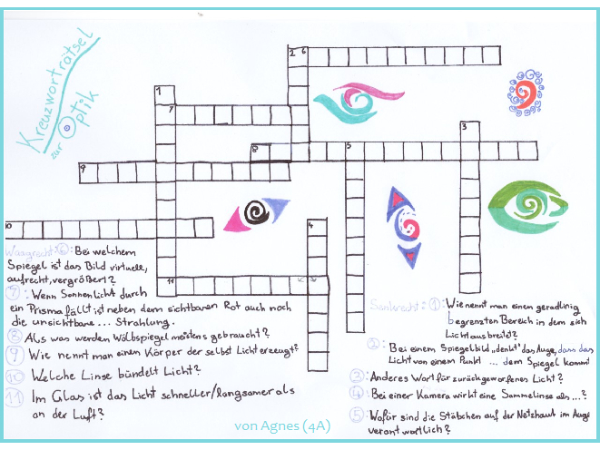 Kreuzworträtsel
zur Optik
2 6
1
7
3
8
5
9
10
4
11
Waagrecht: 6: Bei welchem
Spiegel ist das Bild virtuell,
aufrecht, vergrößert?
7: Wenn Sonnenlicht durch
ein Prisma fällt ist neben dem sichtbaren Rot auch noch
die unsichtbare ... Strahlung.
8 Als was werden Wölbspiegel meistens gebraucht?
9 Wie nennt man einen Körper der selbst Licht erzeugt?
10 Welche Linse bündelt Licht?
11 Im Glas ist das Licht schneller/langsamer als
an der Luft?
Senkrecht: 1: Wie nennt man einen geradlinig
begrenzten Bereich in dem sich
Licht ausbreitet?
2: Bei einem Spiegelbild "denkt" das Auge, dass das
Licht von einem Punkt ... dem Spiegel kommt
3 Anderes Wort für zurückgeworfenes Licht?
4 Bei einer Kamera wirkt eine Sammellinse als ...?
5 Wofür sind die Stäbchen auf der Netzhaut im Auge
verantwortlich?
von Agnes (4A)